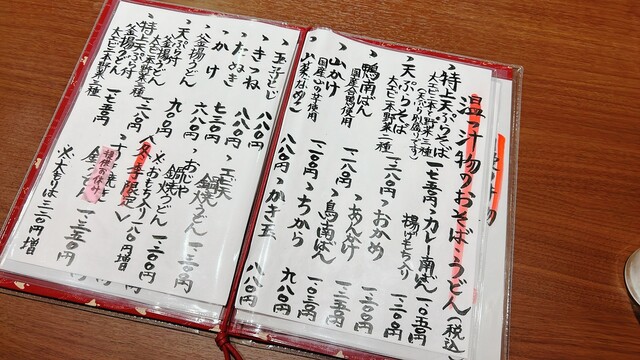 温つ汁物のおそば・うどん(税込)
特上天ぷらそば 一、七五〇円
大エビ二本と野菜三種
(天ぷら別盛りです)
天ぷらそば 一、三八〇円
大エビ一本野菜二種
鴨南ばん 一、二八〇円
国産合鴨使用
山かけ 一、一〇〇円
国産山の芋使用
山菜なめこ 八八〇円
カレー南ばん 一、〇五〇円
揚げもち入り 一、二一〇円
おかめ 一、一〇〇円
あんかけ 一、一五〇円
鳥南ばん 一、〇三〇円
ちから 九八〇円
かき玉 八八〇円
玉子とじ 八八〇円
きつね 八八〇円
たぬき 八八〇円
かけ 七三〇円
釜揚うどん 六八〇円
天ぷら付
釜揚うどん 一、三八〇円
大エビ一本野菜二種
特上天ぷら付
釜揚うどん 一、七五〇円
大エビ二本野菜三種
鍋焼うどん 一、三三〇円
おじや
鍋焼うどん 一、三〇〇円
※おもち入り 一八〇円増
〈冬季限定〉
一、三五〇円
※大盛りは三三〇円増